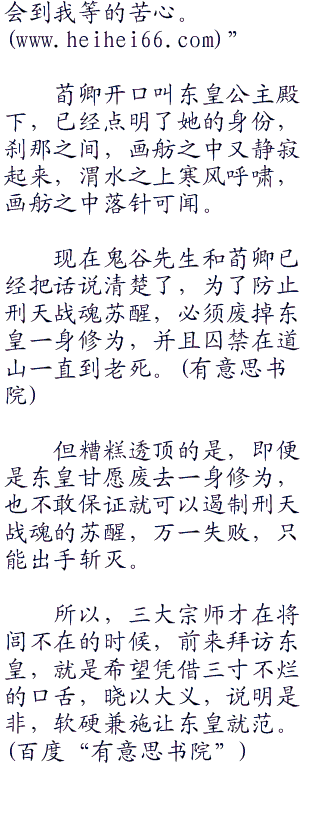 会到我等的苦心。
(www.heihei66.com)”
荀卿开口叫东皇公主殿
下，已经点明了她的身份，
刹那之间，画舫之中又静寂
起来，渭水之上寒风呼啸，
画舫之中落针可闻。
现在鬼谷先生和荀卿已
经把话说清楚了，为了防止
刑天战魂苏醒，必须废掉东
皇一身修为，并且囚禁在道
山一直到老死。(有意思书
院)
但糟糕透顶的是，即便
是东皇甘愿废去一身修为，
也不敢保证就可以遏制刑天
战魂的苏醒，万一失败，只
能出手斩灭。
所以，三大宗师才在将
闾不在的时候，前来拜访东
皇，就是希望凭借三寸不烂
的口舌，晓以大义，说明是
非，软硬兼施让东皇就范。
(百度“有意思书院”)